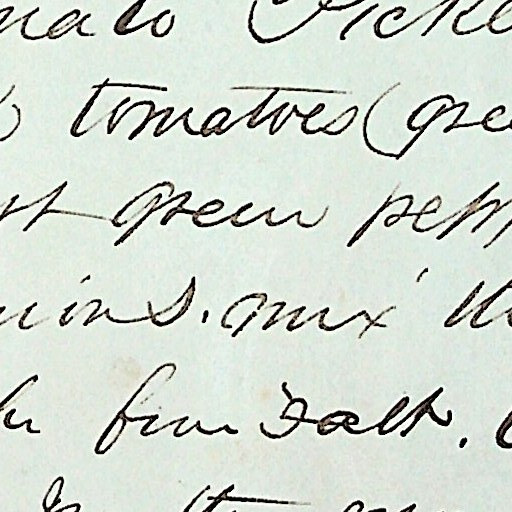 mato Pickl
tomatoes (gre
green pepp
nions. mix th
fine salt.